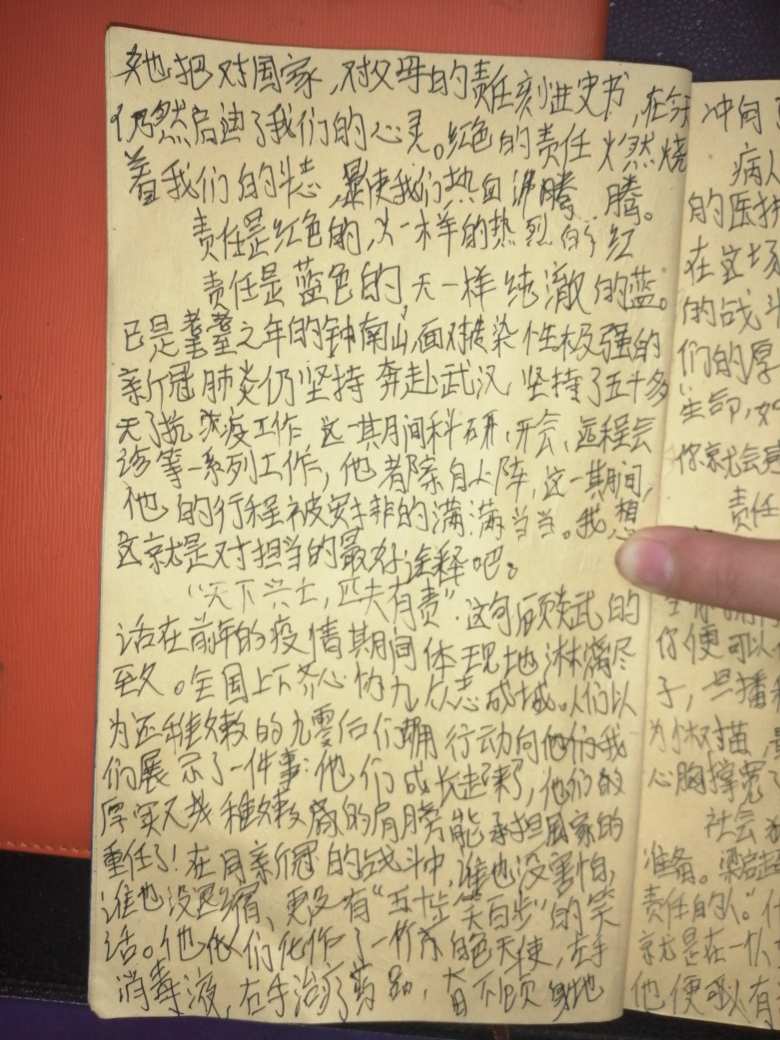 她把对国家,对父母的责任刻进史书,在今天
仍然启迪了我们的心灵。红色的责任火然烧
着我们的斗志,最使我们热血沸腾 腾。
责任是红色的,火一样的热烈的红
责任是蓝色的 天一样纯澈的蓝。
已是耄耋之年的钟南山,面对传染性极强的
新冠肺炎仍坚持奔赴武汉,坚持了五十多
天了抗疫工作,这一其间科研,开会,远程会
诊等一系列工作,他都亲自上阵,这一期间,
他的行程被安排的满满当当。我想
这就是对担当的最好诠释吧。
“天下兴亡,匹夫有责”.这句顾炎武的
话在前年的疫情其间体现地淋漓尽
至久。全国上下齐心协力众志成城。人们以
为还稚嫩的九零后们用行动向他们我
们展示了一件事:他们成长起来了,他们的
厚实又稚嫩的肩膀能承担国家的
重任了!在同新冠的战斗中,谁也没害怕,
谁也没退缩,更没有“五十步笑百步”的笑
话。他们化作了一个个白色天使,左手
消毒液,右手治疗药品,奋不顾身地
冲向
病人
的医护
在这场
的战斗
们的厚
生命,如
你就会
责任
你便可以
子,旦播
为小树苗,最
心胸撑宽了
社会
准备。梁启超
责任的人。”什
就是在一
他便可以有